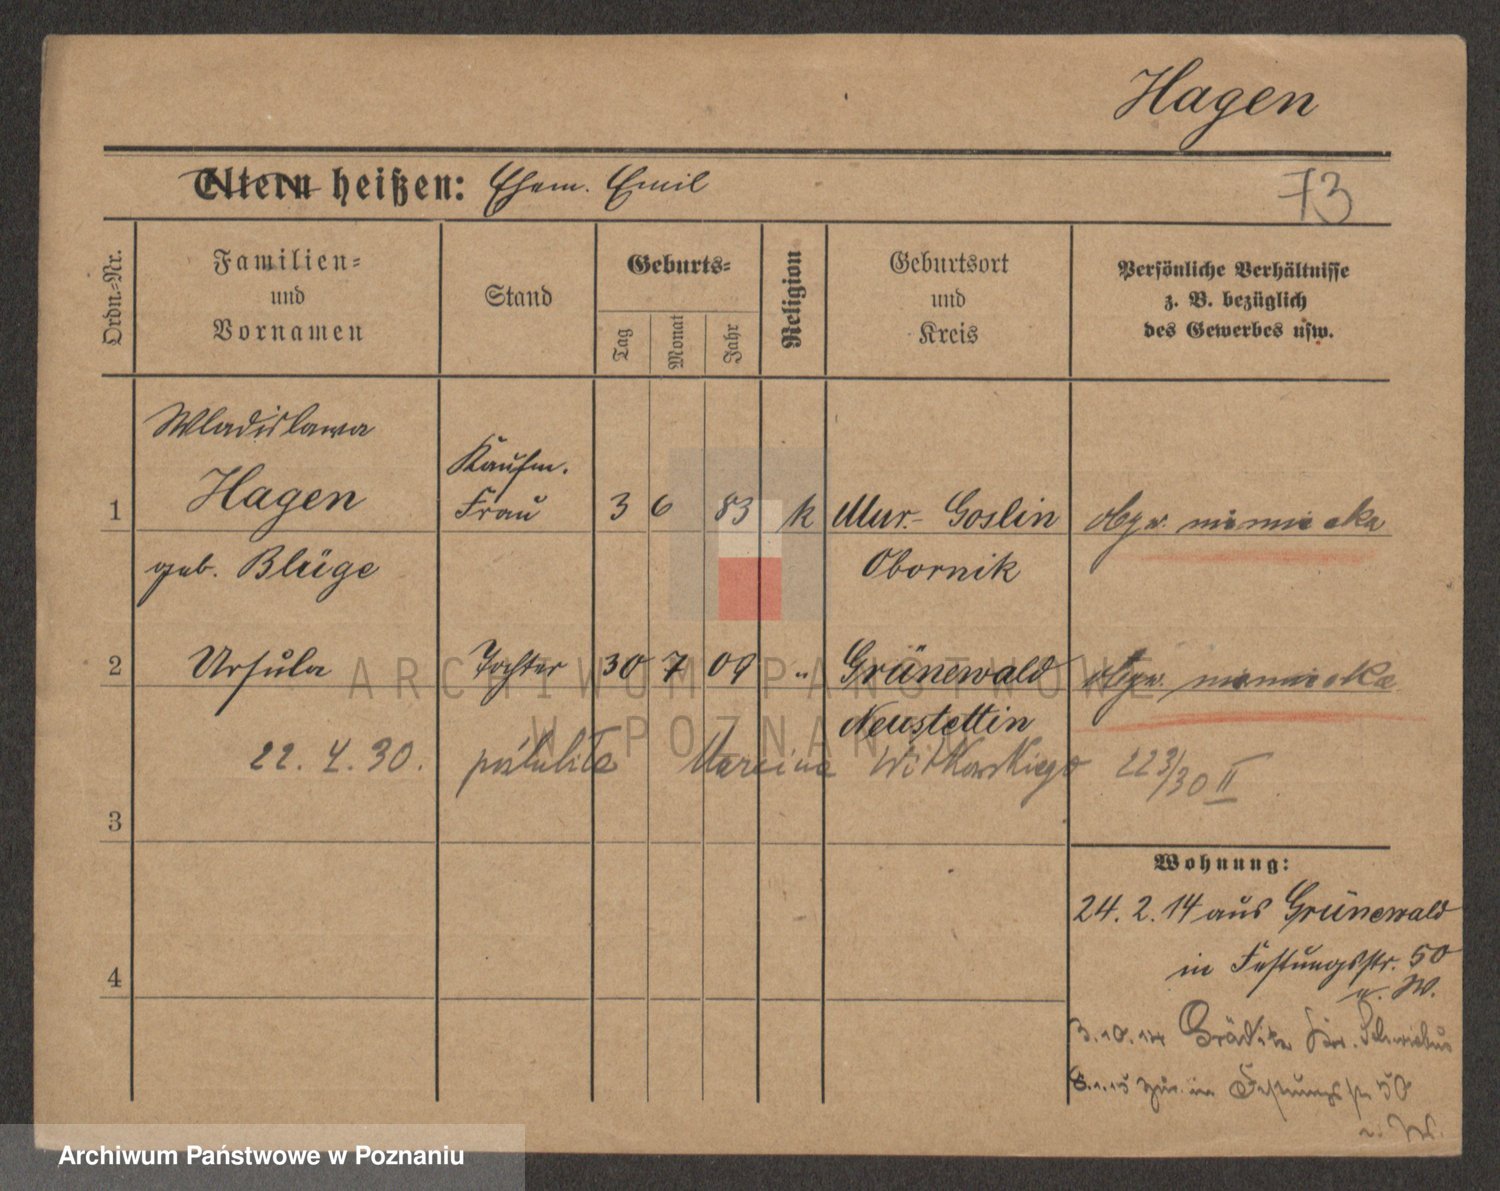 Hagen
Eltern heißen: Ehem. Emil
73
Ordn.-Nr.
Familien-
und
Vornamen
Stand
Geburts-
Tag
Monat
Jahr
Religion
Geburtsort
und
Kreis
Persönliche Verhältnisse
z. B. bezüglich
des Gewerbes usw.
Wladislawa
Kaufm.
1 Hagen Frau 3 6 83 k Mur.- Goslin obyw. niemiecka
geb. Blüge Obornik
2 Ursula Tochter 30 7 09 " Grünewald obyw. niemiecka
Neustettin
22. 4. 30. poślubiła Marcina Witkowskiego 223/30 II
3
Wohnung:
24. 2. 14 aus Grünewald
in Festungsstr. 50
4
b. W.
3.10.14 Schwiebus
8.1.15 zur. in Festungsstr 50
b. W.
ARCHIWUM PAŃSTWOWE
W POZNANIU
Archiwum Państwowe w Poznaniu